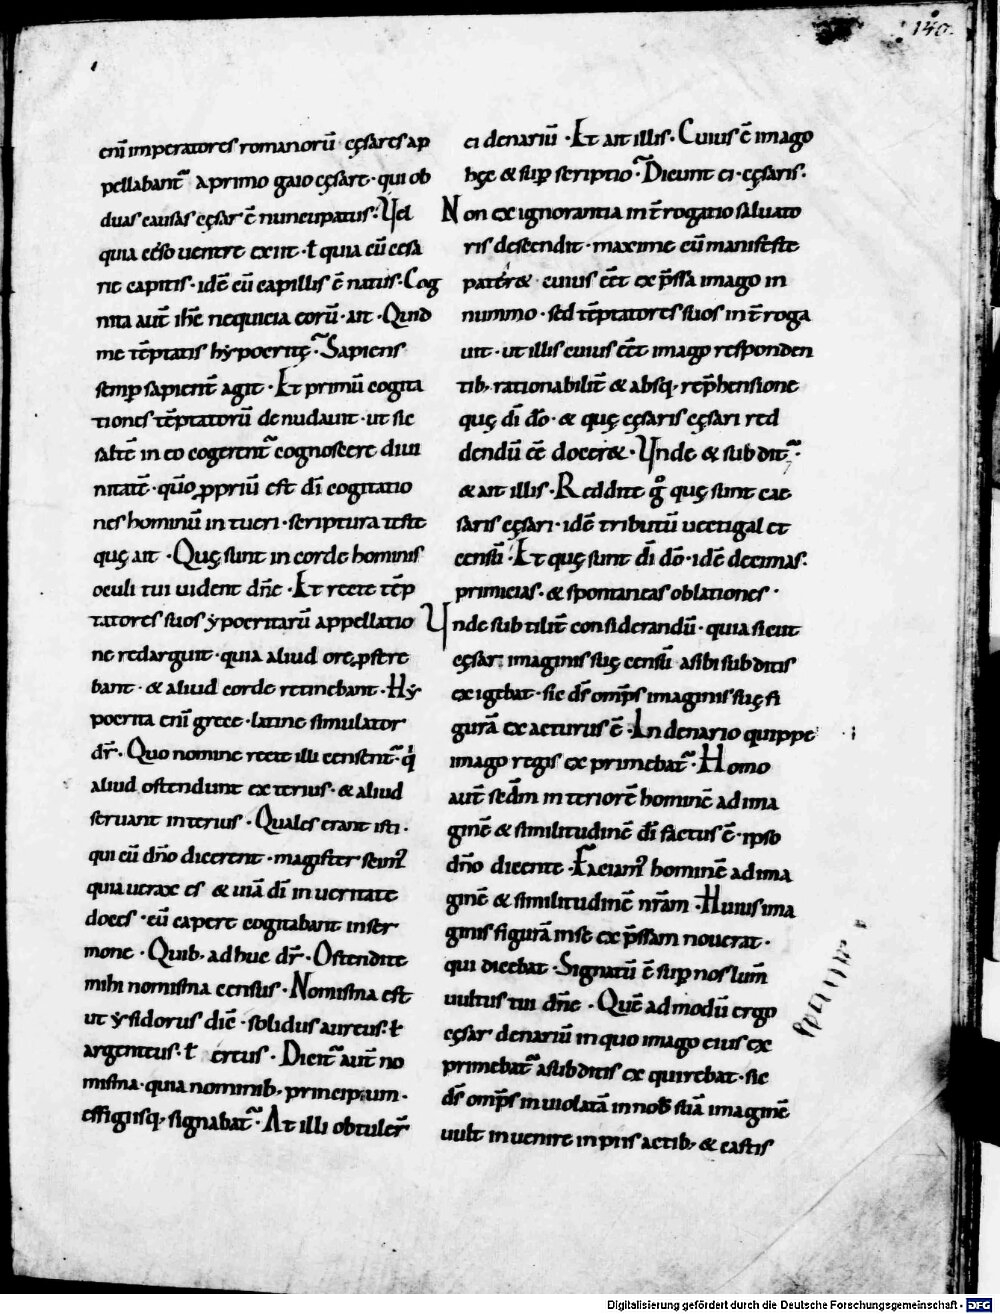 140.
enī imperatores romanorū cęsares ap
pellabant᷑ a primo gaio cęsare · qui ob
duas causas cęsar ē nuncupatus · Vel
quia cęso uentre exiit · ł quia cū cesa
rie capitis · idē cū capillis ē natus · Cog
nita aut̄ ih̄c nequicia eorū · ait · Quid
me tēptatis hẏpocritę · Sapiens
semꝑ sapient̄ agit · Et primū cogita
tiones tēptatorū denudauit · ut sic
saltē in eo cogerent᷑ cognoscere diui
nitatē · quō ꝓpriū est dī cogitatio
nes hominū intueri · scriptura teste
quę ait · Quę sunt in corde hominis
oculi tui uident dn̄e · Et recte tēp
tatores suos ẏpocritarū appellatio
ne redarguit · quia aliud ore ꝓfere
bant · & aliud corde retinebant · Hẏ
pocrita enī grece · latine simulator
dr̄ · Quo nomine recte illi censent᷑ · qͥ
aliud ostendunt exterius · & aliud
seruant interius · Quales erant isti ·
qui cū dn̄o dicerent · magister scim᷒
quia uerax es & uiā dī in ueritate
doces · eū capere cogitabant in ser
mone · Quib; adhuc dr̄ · Ostendite
mihi nomisma census · Nomisma est
ut ẏsidorus dic̄ · solidus aureus · ł
argenteus · ł ereus · Dicit᷑ aut̄ no
misma · quia nominib; principum ·
effigiisq; signabat᷑ · At illi obtuler̄
ei denariū · Et ait illis · Cuius ē imago
hęc & suꝑ scriptio · Dicunt ei · cęsaris ·
Non ex ignorantia int̄rogatio saluato
ris descendit · maxime cū manifeste
pateret · cuius eēt expssa imago in
nummo · sed tēptatores suos int̄roga
uit · ut illis cuius eēt imago responden
tib; rationabilit̄ & absq; rep̄hensione
quę dī dō · & quę cęsaris cęsari red
dendū eē doceret · Vnde & subdit᷑ ·
& ait illis · Reddite gͦ quę sunt cae
saris cęsari · idē tributū uectigal et
censū · Et quę sunt dī dō · idē decimas ·
primicias · & spontaneas oblationes ·
Vnde subtilit̄ considerandū · quia sicut
cęsar imaginis suę censū a sibi subditis
exigebat · sic ds̄ omp̄s imaginis suę fi
gurā exacturus ē · In denario quippe
imago regis exprimebat᷑ · Homo
aut̄ secdm interiorē hominē ad ima
ginē & similitudinē dī factus ē · ipso
dn̄o dicente · Faciam᷒ hominē ad ima
ginē & similitudinē nr̄am · Huius ima
ginis figurā in se exp̄ssam nouerat ·
qui dicebat · Signatū ē suꝑ nos lum̄
uultus tui dn̄e · Quēadmodū ergo
cęsar denariū in quo imago eius ex
primebat᷑ a subditis exquirebat · sic
ds̄ omp̄s inuiolatā in nob̄ suā imaginē
uult inuenire in piis actib; & castis
Digitalisierung gefördert durch die Deutsche Forschungsgemeinschaft - DFG